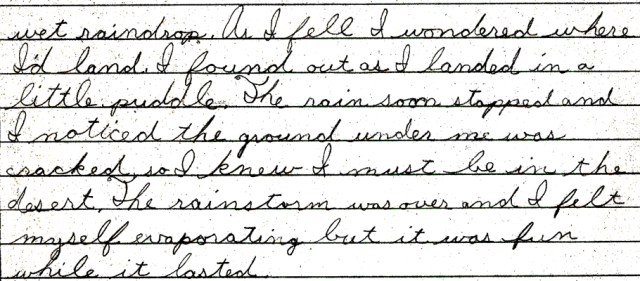 wet raindrop. As I fell I wondered where
I'd land. I found out as I landed in a
little puddle. The rain soon stopped and
I noticed the ground under me was
cracked, so I knew I must be in the
desert. The rainstorm was over and I felt
myself evaporating but it was fun
while it lasted.